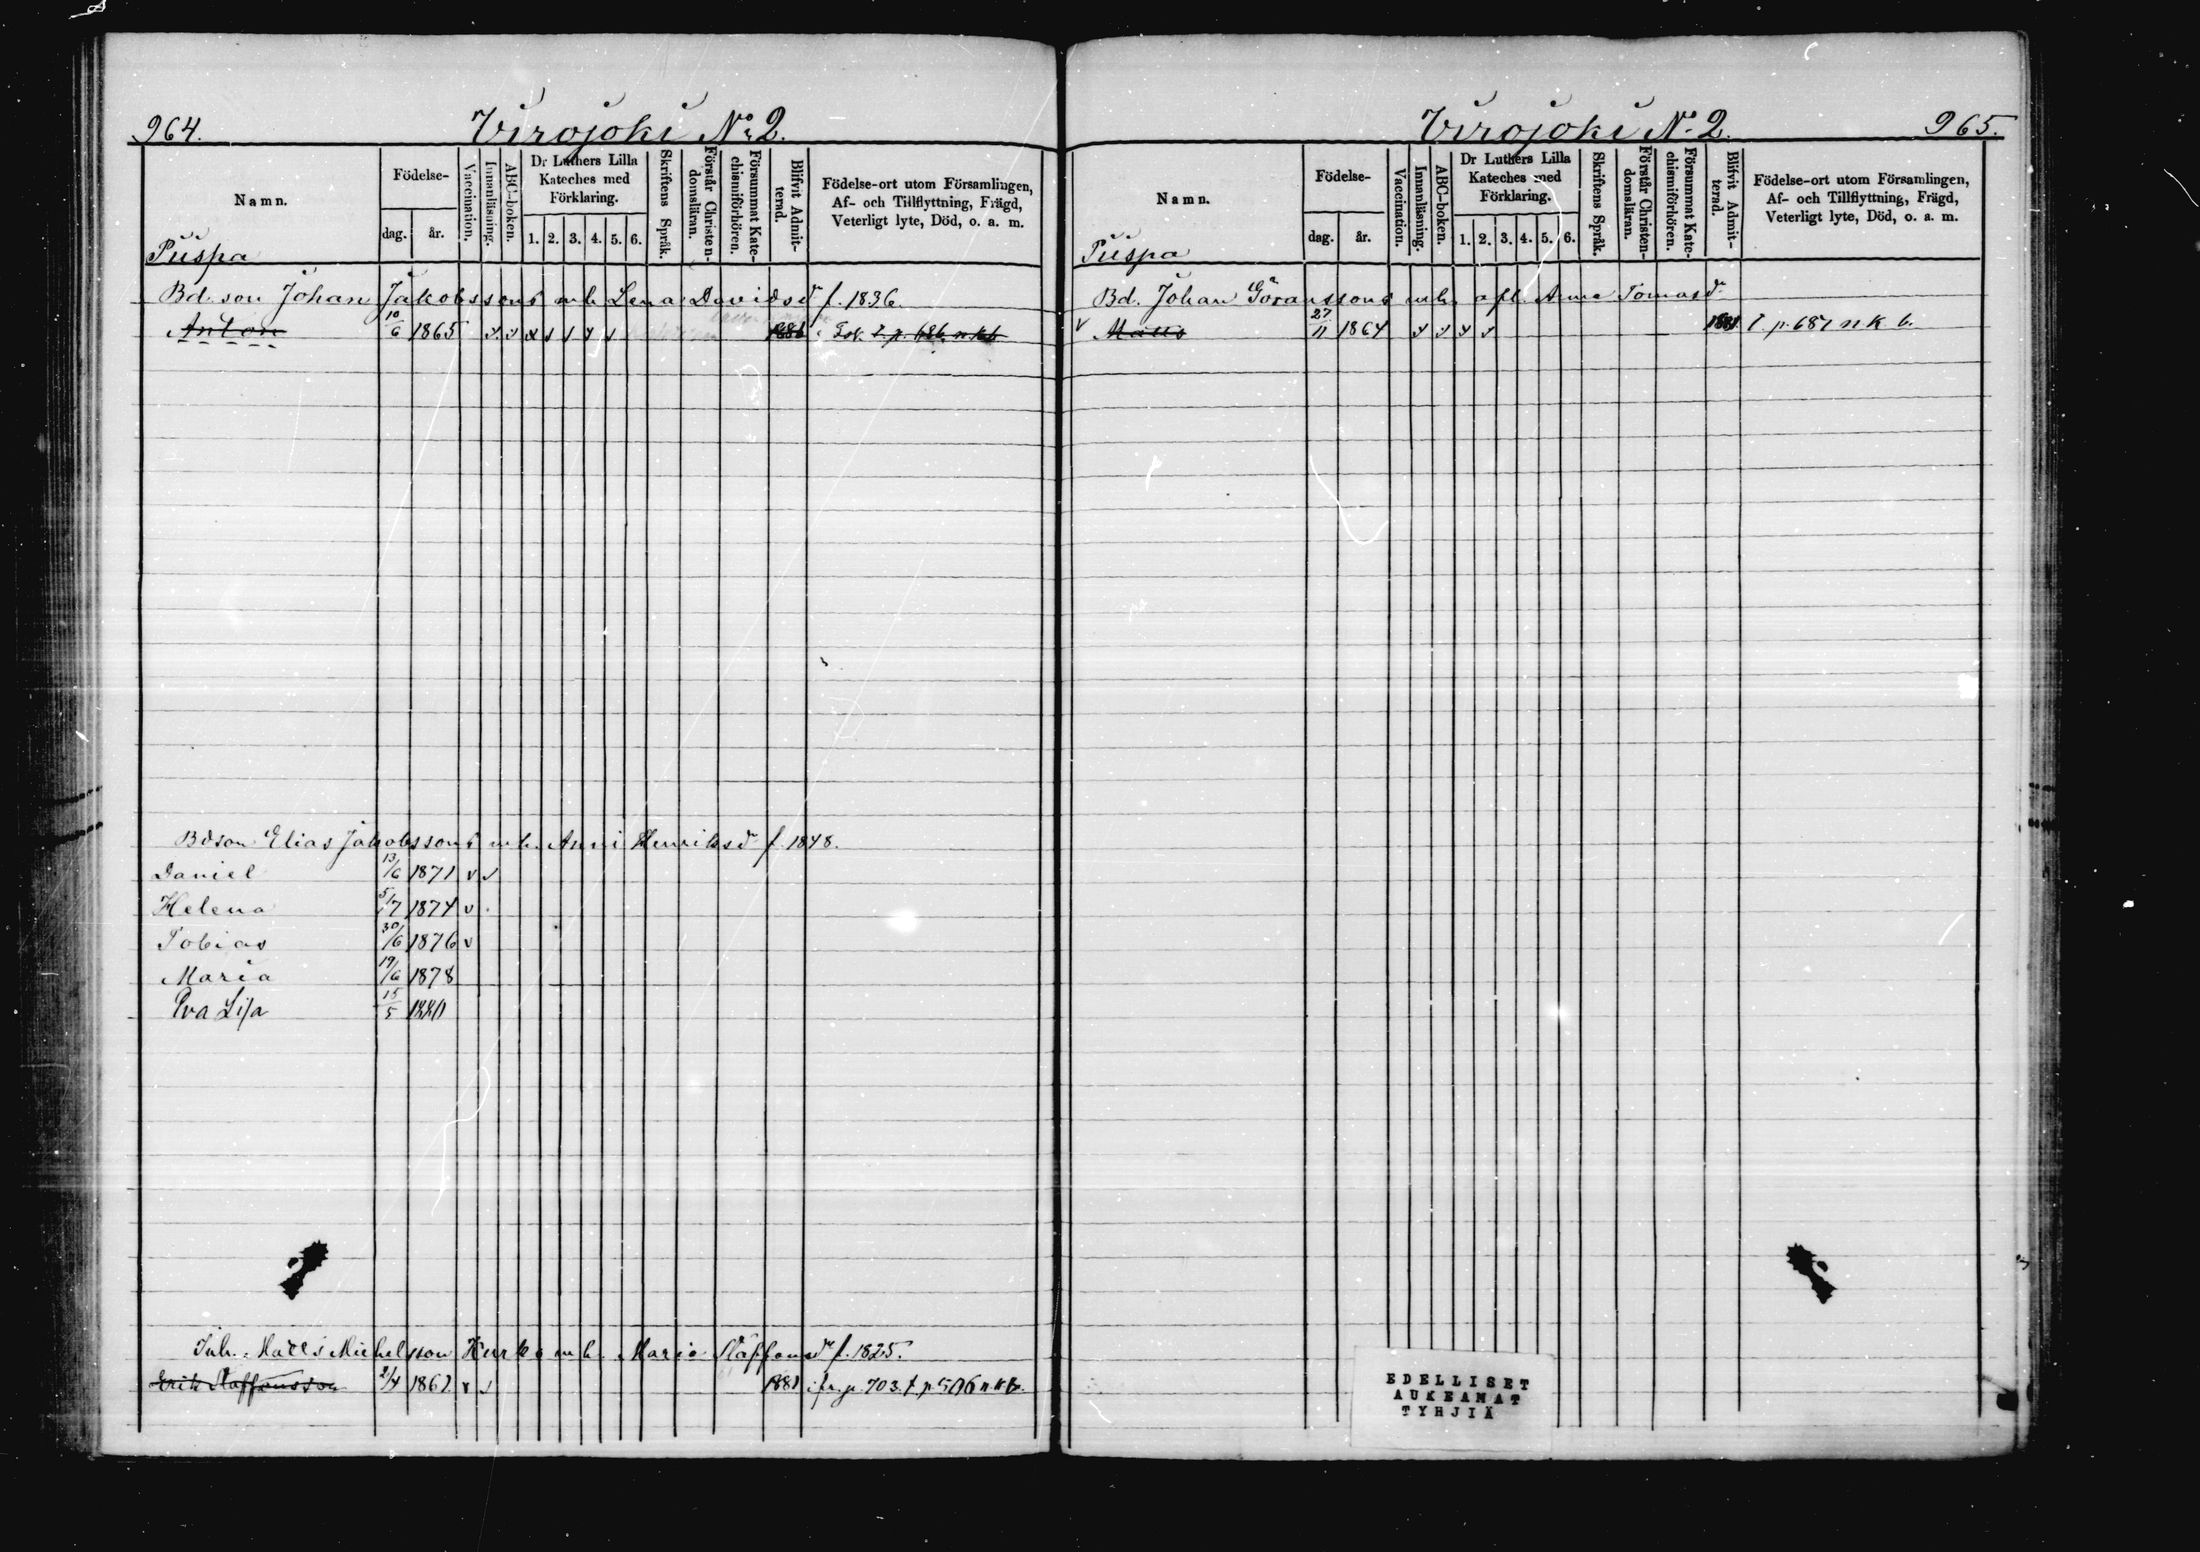 964. Virojoki No 2.
Namn. Födelse- dag. år. Vaccination. Innanläsning. ABC-boken. Dr Luthers Lilla Kateches med Förklaring. 1. 2. 3. 4. 5. 6. Skriftens Språk. Förstår Christendomsläran. Försummat Katechismiförhören. Blifvit Admitterad. Födelse-ort utom Församlingen, Af- och Tillflyttning, Frägd, Veterligt lyte, Död, o. a. m.
Piispa
Bd. son Johan Jakobssons mh. Lena Davidsdr f. 1836.
Anton 10/6 1865 v v v v v v v 1881 t. p. 686 n.k.b
Bdson Elias Jakobssons mh. Anni Henriksdr f. 1848.
Daniel 13/6 1871 v v
Helena 5/7 1874 v
Tobias 30/6 1876 v
Maria 19/6 1878
Eva Lisa 15/5 1880
Inh. Matts Michelsson Hurks mh. Maria Staffansdr f. 1825.
Erik Staffansson 2/4 1862 v v 1881 fr. p. 703. t. p. 506 n.k.b.
Virojoki N. 2. 965.
Namn. Födelse- dag. år. Vaccination. Innanläsning. ABC-boken. Dr Luthers Lilla Kateches med Förklaring. 1. 2. 3. 4. 5. 6. Skriftens Språk. Förstår Christendomsläran. Försummat Katechismiförhören. Blifvit Admitterad. Födelse-ort utom Församlingen, Af- och Tillflyttning, Frägd, Veterligt lyte, Död, o. a. m.
Piispa
Bd. Johan Göranssons mh. afl. Anna Tomasdr
v Matts 27/11 1864 v v v v 1881 t p. 687 n k b.
EDELLISET
AUKEAMAT
TYHJIÄ